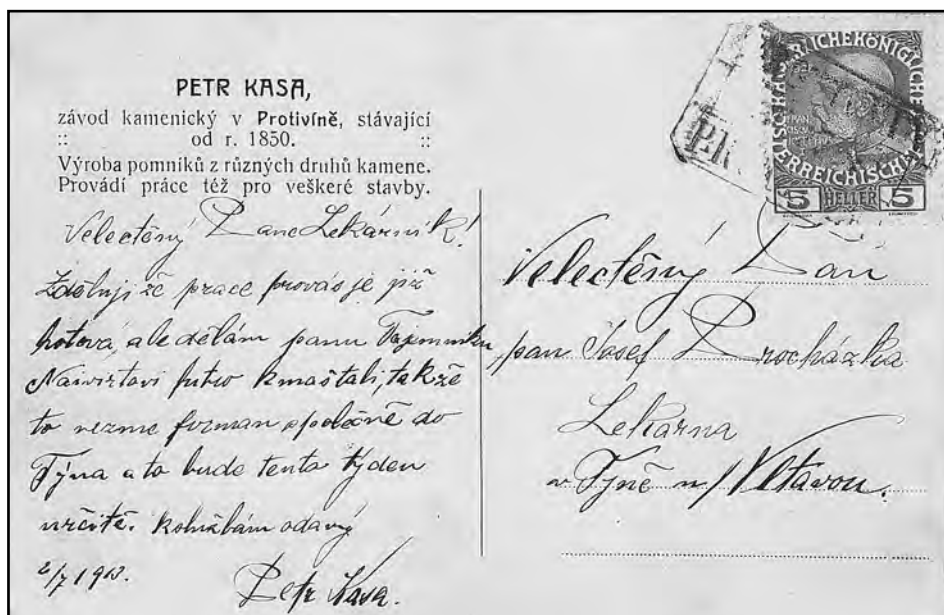 PETR KASA,
závod kamenický v Protivíně, stávající
:: od r. 1850. ::
Výroba pomníků z různých druhů kamene.
Provádí práce též pro veškeré stavby.
Velectěný Pane Lekárník!
Zděluji že prace provás je již
hotová, ale dělám panu Tajemníku
Naiwirtovi futro kmaštali, takže
to vezme forman společně do
Týna a to bude tento týden
určitě. kslužbám odaný
2/7 1913.
Petr Kasa.
Velectěný Pan
pan Josef Procházka
Lekarna
v Týně n/Vltavou.
HELLER
5
5